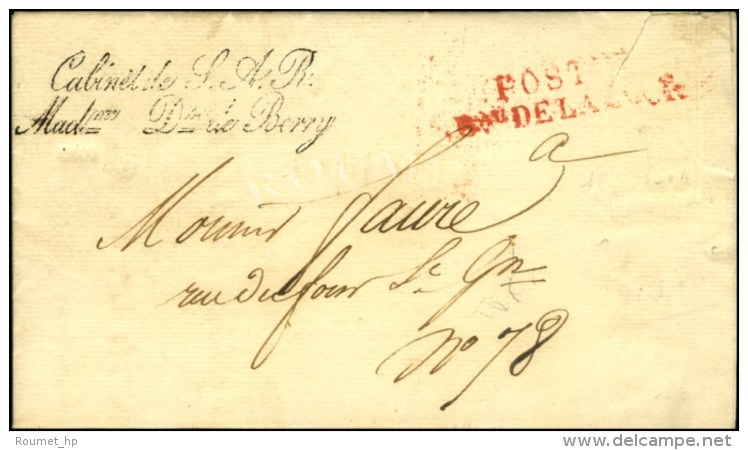 Cabinet de S. A. R.
Mad.me D.sse de Berry
POST
B.au DE LA
a
Monsieur Faure
rue du four St Gn
No 78
Roumet_hp
delcampe.net